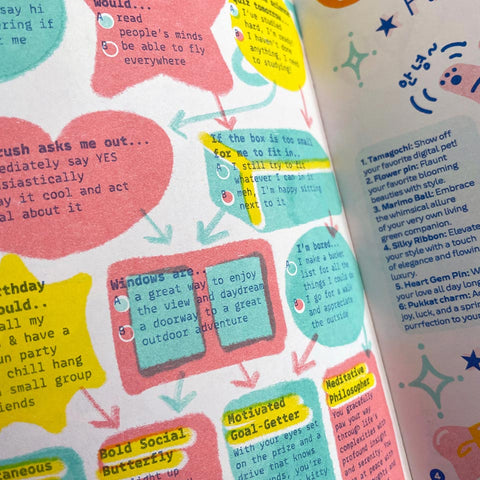 say hi
ering if
me
would..
A read
people's minds
B be able to fly
everywhere
tomorrow
I've studied
hard, I'm ready
B I haven't done
anything, I need
to studying!
rush asks me out...
mediately say YES
usiastically
ay it cool and act
al about it
If the box is too small
for me to fit in..
A I still try to fit
whatever I can in it
B meh, I'm happy sitting
next to it
Windows are..
A a great way to enjoy
the view and daydream
B a doorway to a great
outdoor adventure
I'm bored..
A I make a bucket
list for all the
things I could do
B I go for a walk
and appreciate
the outside
rthday
ould..
all my
& have a
un party
chill hang
small group
iends
taneous
Bold Social
Butterfly
ight up
Motivated
Goal-Getter
With your eyes set
on the prize and a
drive that knows
unds, you're
kitty
Meditative
Philosopher
You gracefully
paw your way
through life's
complexities with
profound insight
and serenity.
at peace with
안녕~
1. Tamagochi: Show off
your favorite digital pet!
2. Flower pin: Flaunt
your favorite blooming
beauties with style.
3. Marimo Ball: Embrace
the whimsical allure
of your very own living
green companion.
4. Silky Ribbon: Elevate
your style with a touch
of elegance and flowin
luxury.
5. Heart Gem Pin: W
your love all day long
6. Pukkat charm: A
joy, luck, and a sprin
purrfection to your
4